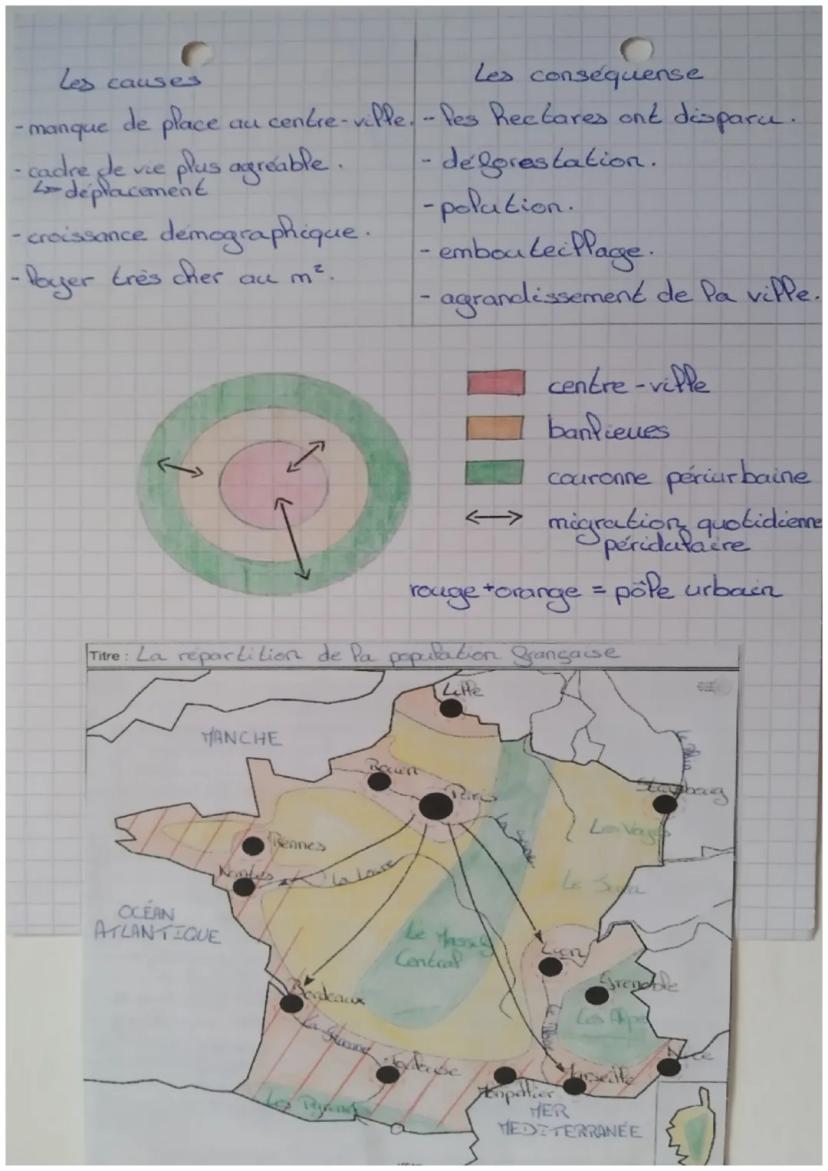 Les causes
- manque de place au centre-ville.
- cadre de vie plus agréable.
↳ déplacement
- croissance démographique.
- loyer très cher au m².
Les conséquense
- les hectares ont disparu.
- déforestation.
- polution.
- embouteillage.
- agrandissement de la ville.
centre-ville
banlieues
couronne périurbaine
migration quotidienne
rouge + orange = pôle urbain
Titre : La répartition de la population française
Lille
MANCHE
Rouen
Paris
Strasbourg
La Seine
Les Vosges
Rennes
Nantes
La Loire
Le Jura
OCÉAN
ATLANTIQUE
Le Massif
Central
Lyon
Grenoble
Bordeaux
Les Alpes
La Garonne
Toulouse
Nice
Montpellier
Marseille
Les Pyrénées
MER
MEDITERRANÉE